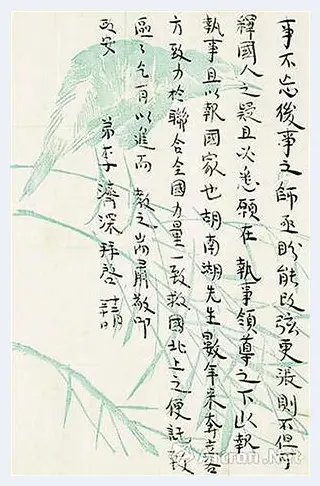 事不忘後事之師亟盼能改弦更張則不但可
釋國人之疑且必悉願在 執事領導之下以報
執事且以報國家也胡南湖先生數年來奔走各
方致力於聯合全國力量一致救國北上之便託致
區區乞有以進而 教之耑肅敬叩
政安 弟李濟深拜啓 十二月二十日